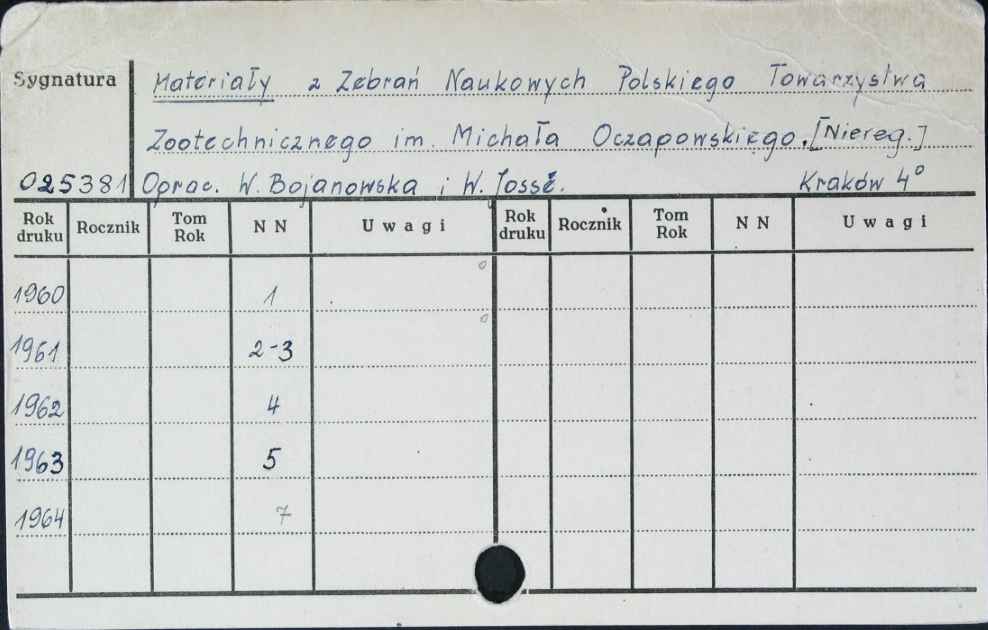 Sygnatura Materiały z Zebrań Naukowych Polskiego Towarzystwa
Zootechnicznego im. Michała Oczapowskiego. [Niereg.]
025381 Oprac. W. Bojanowska i W. Kraków 4°
Rok druku Rocznik Tom Rok NN Uwagi Rok druku Rocznik Tom Rok NN Uwagi
1960 1
1961 2-3
1962 4
1963 5
1964 7